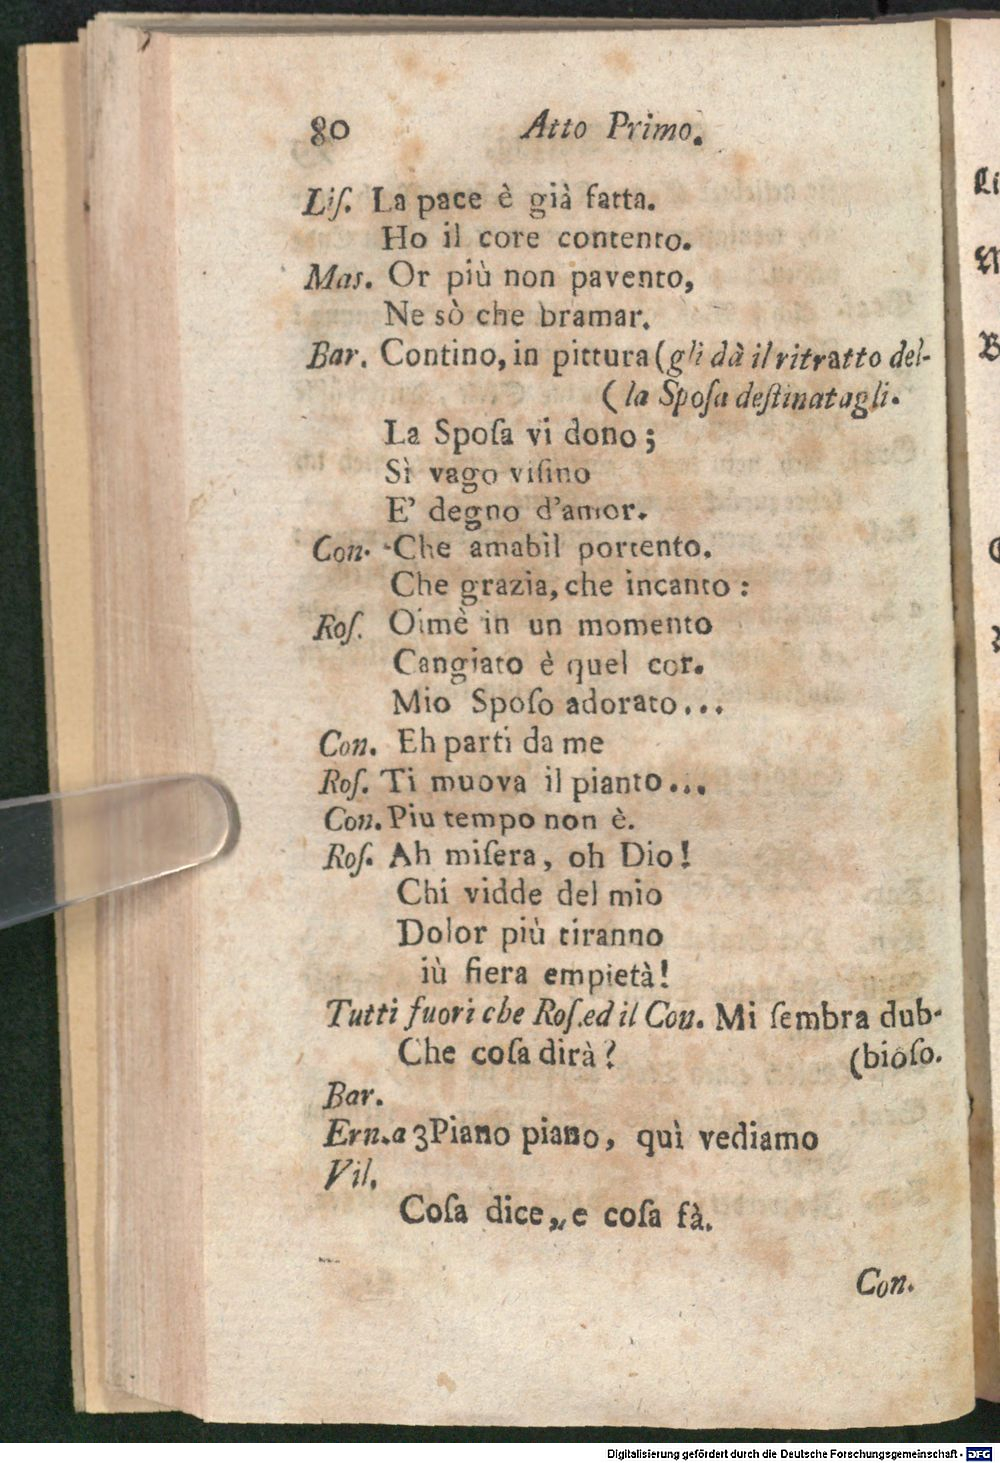 80 Atto Primo.
Liſ. La pace è già fatta.
Ho il core contento.
Mas. Or più non pavento,
Ne sò che bramar.
Bar. Contino, in pittura (gli dà il ritratto del-
( la Spoſa deſtinatagli.
La Spoſa vi dono;
Sì vago viſino
E' degno d'amor.
Con. Che amabil portento.
Che grazia, che incanto:
Roſ. Oimè in un momento
Cangiato è quel cor.
Mio Spoſo adorato...
Con. Eh parti da me
Roſ. Ti muova il pianto...
Con. Piu tempo non è.
Roſ. Ah miſera, oh Dio!
Chi vidde del mio
Dolor più tiranno
iù fiera empietà!
Tutti fuori che Roſ. ed il Con. Mi ſembra dub-
Che coſa dirà? (bioſo.
Bar.
Ern. a 3 Piano piano, quì vediamo
Vil.
Coſa dice, e coſa fà.
Con.
Digitalisierung gefördert durch die Deutsche Forschungsgemeinschaft - DFG